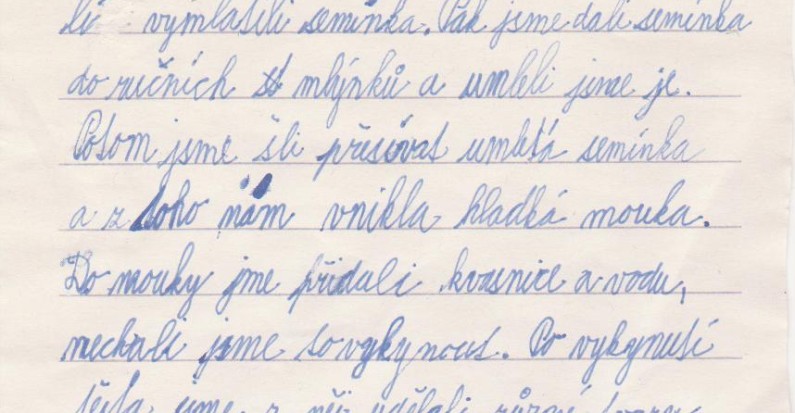 li vymlátili semínka. Pak jsme dali semínka
do ručních mlýnků a umleli jsme je.
Potom jsme šli přesívat umletá semínka
a z toho nám vnikla hladká mouka.
Do mouky jme přidali kvasnice a vodu,
nechali jsme to vykynout. Po vykynutí
těsta jsme z něj udělali různé tvary